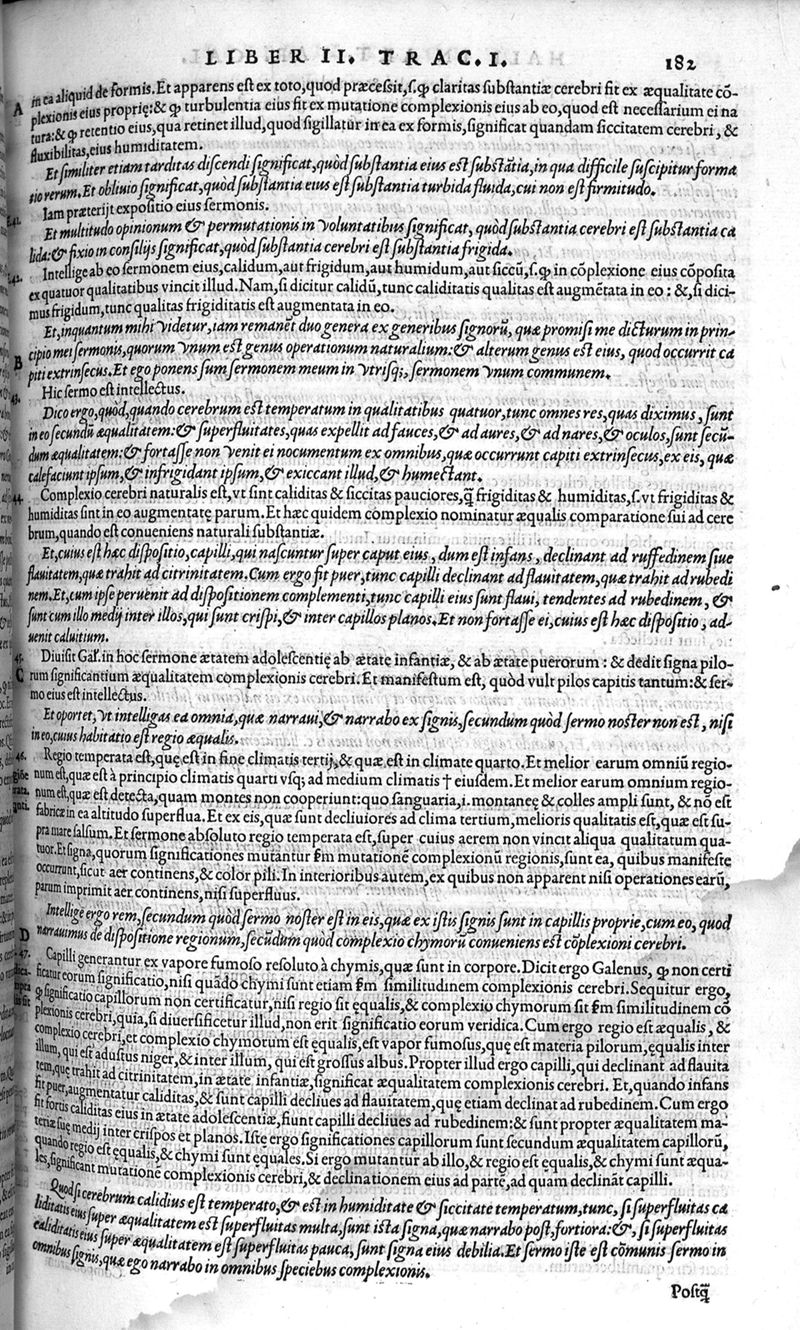 LIBER II. TRAC. I. 182
in ea aliquid de formis. Et apparens est ex toto, quod præcessit, s. ꝙ claritas substantiæ cerebri fit ex æqualitate cō-
A plexionis eius proprie: & ꝙ turbulentia eius fit ex mutatione complexionis eius ab eo, quod est necessarium ei na
tura: & ꝙ retentio eius, qua retinet illud, quod sigillatur in ea ex formis, significat quandam siccitatem cerebri, &
fluxibilitas, eius humiditatem.
Et similiter etiam tarditas discendi significat, quòd substantia eius est substātia, in qua difficile suscipitur forma
tio rerum. Et obliuio significat, quòd substantia eius est substantia turbida fluida, cui non est firmitudo.
Iam præterijt expositio eius sermonis.
Et multitudo opinionum & permutationis in voluntatibus significat, quòd substantia cerebri est substantia ca
lida: & fixio in consilijs significat, quòd substantia cerebri est substantia frigida.
42. Intellige ab eo sermonem eius, calidum, aut frigidum, aut humidum, aut siccū, s. ꝙ in cōplexione eius cōposita
ex quatuor qualitatibus vincit illud. Nam, si dicitur calidū, tunc caliditatis qualitas est augmētata in eo: &, si dici-
mus frigidum, tunc qualitas frigiditatis est augmentata in eo.
Et, inquantum mihi videtur, iam remanēt duo genera ex generibus signorū, quæ promisi me dicturum in prin-
B cipio mei sermonis, quorum vnum est genus operationum naturalium: & alterum genus est eius, quod occurrit ca
piti extrinsecus. Et ego ponens sum sermonem meum in vtrisq;, sermonem vnum communem.
43. Hic sermo est intellectus.
Dico ergo, quod, quando cerebrum est temperatum in qualitatibus quatuor, tunc omnes res, quas diximus, sunt
in eo secundū æqualitatem: & superfluitates, quas expellit ad fauces, & ad aures, & ad nares, & oculos, sunt secū-
dum æqualitatem: & fortasse non venit ei nocumentum ex omnibus, quæ occurrunt capiti extrinsecus, ex eis, quæ
calefaciunt ipsum, & infrigidant ipsum, & exiccant illud, & humectant.
44. Complexio cerebri naturalis est, vt sint caliditas & siccitas pauciores, q̄ frigiditas & humiditas, s. vt frigiditas &
humiditas sint in eo augmentatę parum. Et hæc quidem complexio nominatur æqualis comparatione sui ad cere
brum, quando est conueniens naturali substantiæ.
Et, cuius est hæc dispositio, capilli, qui nascuntur super caput eius, dum est infans, declinant ad ruffedinem siue
flauitatem, quæ trahit ad citrinitatem. Cum ergo fit puer, tunc capilli declinant ad flauitatem, quæ trahit ad rubedi
nem. Et, cum ipse peruenit ad dispositionem complementi, tunc capilli eius sunt flaui, tendentes ad rubedinem, &
sunt cum illo medij inter illos, qui sunt crispi, & inter capillos planos. Et non fortasse ei, cuius est hæc dispositio, ad-
uenit caluitium.
45. Diuisit Gal̄. in hoc sermone ætatem adolescentię ab ætate infantiæ, & ab ætate puerorum: & dedit signa pilo-
C rum significantium æqualitatem complexionis cerebri. Et manifestum est, quòd vult pilos capitis tantum: & ser-
mo eius est intellectus.
Et oportet, vt intelligas ea omnia, quæ narraui, & narrabo ex signis, secundum quòd sermo noster non est, nisi
in eo, cuius habitatio est regio æqualis.
46. Regio temperata est, quę est in fine climatis tertij, & quæ est in climate quarto. Et melior earum omniū regio-
num est, quæ est à principio climatis quarti vsq; ad medium climatis † eiusdem. Et melior earum omnium regio-
num est, quæ est detecta, quam montes non cooperiunt: quo sanguaria, i. montaneę & colles ampli sunt, & nō est
fabricæ in ea altitudo superflua. Et ex eis, quæ sunt decliuiores ad clima tertium, melioris qualitatis est, quæ est su-
pra mare salsum. Et sermone absoluto regio temperata est, super cuius aerem non vincit aliqua qualitatum qua-
tuor. Et signa, quorum significationes mutantur ſm mutationē complexionū regionis, sunt ea, quibus manifeste
occurrunt, sicut aer continens, & color pili. In interioribus autem, ex quibus non apparent nisi operationes earū,
parum imprimit aer continens, nisi superfluus.
Intellige ergo rem, secundum quòd sermo noster est in eis, quæ ex istis signis sunt in capillis proprie, cum eo, quod
D narrauimus de dispositione regionum, secūdum quòd complexio chymorū conueniens est cōplexioni cerebri.
47. Capilli generantur ex vapore fumoso resoluto à chymis, quæ sunt in corpore. Dicit ergo Galenus, ꝙ non certi
ficatur eorum significatio, nisi quādo chymi sunt etiam ſm similitudinem complexionis cerebri. Sequitur ergo,
ꝙ significatio capillorum non certificatur, nisi regio sit ęqualis, & complexio chymorum sit ſm similitudinem cō
plexionis cerebri, quia, si diuersificetur illud, non erit significatio eorum veridica. Cum ergo regio est æqualis, &
complexio cerebri, et complexio chymorum est ęqualis, est vapor fumosus, quę est materia pilorum, ęqualis inter
illum, qui est adustus niger, & inter illum, qui est grossus albus. Propter illud ergo capilli, qui declinant ad flauita
tem, quę trahit ad citrinitatem, in ætate infantiæ, significat æqualitatem complexionis cerebri. Et, quando infans
fit puer, augmentatur caliditas, & sunt capilli decliues ad flauitatem, quę etiam declinat ad rubedinem. Cum ergo
fit fortis caliditas eius in ætate adolescentiæ, fiunt capilli decliues ad rubedinem: & sunt propter æqualitatem ma-
teriæ suę medij inter crispos et planos. Iste ergo significationes capillorum sunt secundum æqualitatem capillorū,
quando regio est ęqualis, & chymi sunt ęquales. Si ergo mutantur ab illo, & regio est ęqualis, & chymi sunt æqua-
les, significant mutationē complexionis cerebri, & declinationem eius ad partē, ad quam declināt capilli.
Quod si cerebrum calidius est temperato, & est in humiditate & siccitate temperatum, tunc, si superfluitas ca
liditatis eius super æqualitatem est superfluitas multa, sunt ista signa, quæ narrabo post, fortiora: &, si superfluitas
caliditatis eius super æqualitatem est superfluitas pauca, sunt signa eius debilia. Et sermo iste est cōmunis sermo in
omnibus signis, quæ ego narrabo in omnibus speciebus complexionis.
Postq̄